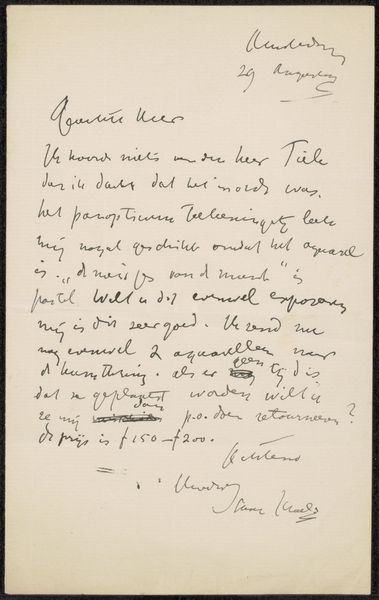 Amsterdam
29 Augustus
Geachte Heer
Ik hoorde niets van den heer Tiele
dus ik dacht dat het in orde was.
het panopticum teekeningetje leek
mij nogal geschikt omdat het aquarel
is. „de meisjes van de munt" is
pastel. Wilt u dit evenwel exposeren
mij is dit zeer goed. Ik zend nu
nog evenwel 2 aquarellen naar
de kunstkring. als er geen tijd is
dat ze geplaatst worden wilt u
ze mij dan p.o. doen retourneren?
de prijs is f 150 – f 200.
Achtend
Isaac Israels